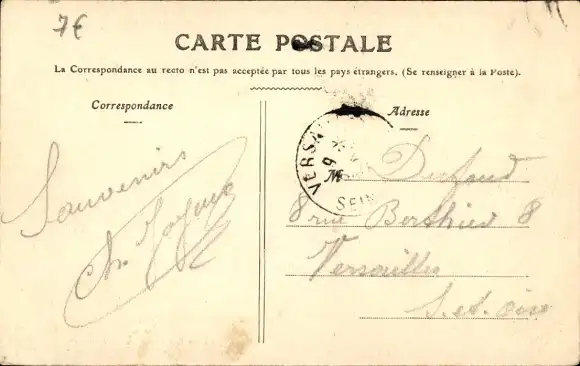 7€
CARTE POSTALE
La Correspondance au recto n'est pas acceptée par tous les pays étrangers. (Se renseigner à la Poste).
Correspondance
Adresse
Souvenirs
Ch.
VERSA
SEI
M
8 rue Berthier 8
Versailles
S. et. oise